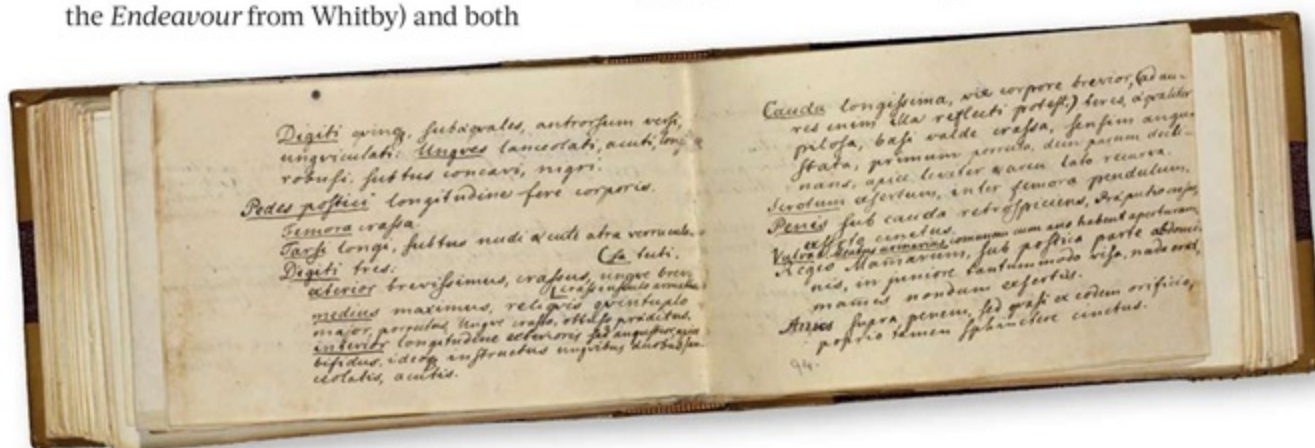 the Endeavour from Whitby) and both
Digiti quinq, subæquales, antrorsum versi,
unguiculati: Ungues lanceolati, acuti,
robusti. subtus concavi, nigri.
Pedes postici longitudine fere corporis.
Femora crassa.
Tarsi longi, subtus nudi & cute atra
tecti.
Digiti tres:
exterior brevissimus, crassus, ungve
medius maximus, reliquis quintuplo
major, Ungve crasso, obtuso præditus,
interior longitudine exterioris sed angustior,
bifidus, instructus ungvibus duobus
acutis.
Cauda longissima, vix corpore brevior, (ad au-
res enim illa reflecti potest,) teres, æqualiter
pilosa, basi valde crassa, sensim angu
stata, primum porrecta, dein parum decli-
nans, apice leviter lato recurva.
Scrotum exsertum, inter femora pendulum,
Penis sub cauda retrospiciens, Præputio
cinctus.
communem cum ano habent aperturam
Regio Mamarum, sub postica parte abdomi-
nis, in juniore tantummodo visa, nuda erat,
mamis nondum exsertis.
Anus supra penem, sed quasi ex eodem orificio,
proprio tamen sphinctere cinctus.
94.